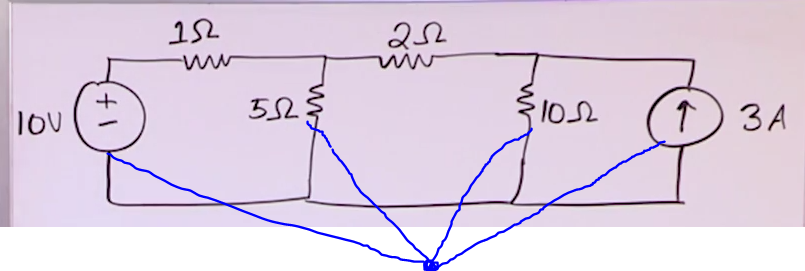 1Ω
2Ω
10V
+
-
5Ω
10Ω
3A